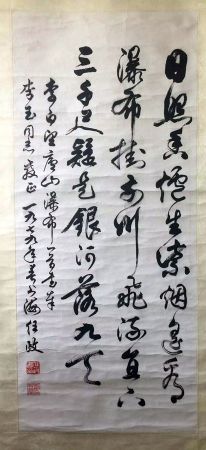 日照香爐生紫烟遙看
瀑布掛前川飛流直下
三千尺疑是銀河落九天
李白望廬山瀑布一首書奉
李玉同志教正一九七九年春上海任政